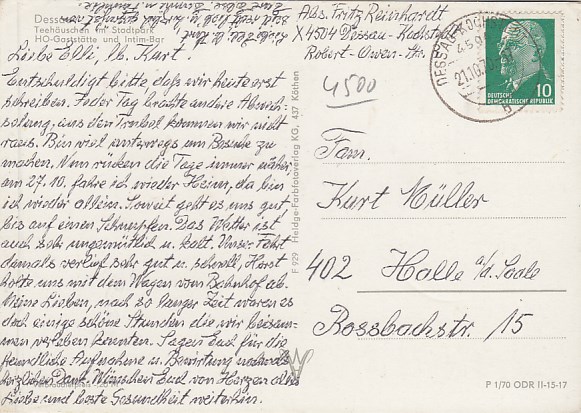 Dessau
Teehäuschen im Stadtpark
HO-Gaststätte und Intim-Bar
Abs. Fritz Reinhardt
X4504 Dessau-
Robert-Owen-Str.
4500
DESSAU-KOCHSTEDT
27.10.70
10
DEUTSCHE
DEMOKRATISCHE REPUBLIK
Liebe Elli, lb. Kurt.
Entschuldigt bitte daß wir heute erst
schreiben. Jeder Tag brachte andere Abwech-
slung, aus dem Trubel kommen wir nicht
raus. Bin viel unterwegs um Besuche zu
machen. Nun rücken die Tage immer näher,
am 27.10. fahre ich wieder Heim, da bin
ich wieder allein. Soweit geht es uns gut
bis auf einen Schnupfen. Das Wetter ist
auch sehr ungemütlich u. kalt. Unsere Fahrt
damals verlief sehr gut u. schnell, Horst
holte uns mit dem Wagen vom Bahnhof ab.
Meine Lieben, nach so langer Zeit waren es
doch einige schöne Stunden die wir beisam-
men verleben konnten. Sagen Euch für die
freundliche Aufnahme u. Bewirtung nochmals
herzlichen Dank. Wünschen Euch von Herzen alles
Liebe und beste Gesundheit weiterhin.
F 929 Heldge-Farbfotoverlag KG, 437 Köthen
Fam.
Kurt Müller
402 Halle a/d. Saale
Rossbachstr. 15
P 1/70 ODR II-15-17